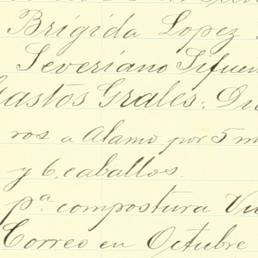 Brigida Lopez
Severiano Sifuen
Gastos Grales. Di
ros a Alamo por 5 m
y 6 caballos.
pª compostura Vu
Correo en Octubre